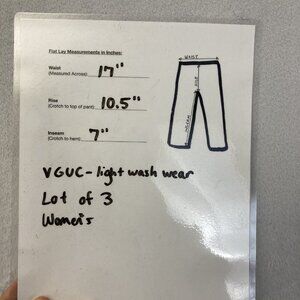 Flat Lay Measurements in Inches:
Waist
(Measured Across): 17"
Rise
(Crotch to top of pant): 10.5"
Inseam
(Crotch to hem): 7"
WAIST
RISE
INSEAM
VGUC - light wash wear
Lot of 3
Women's